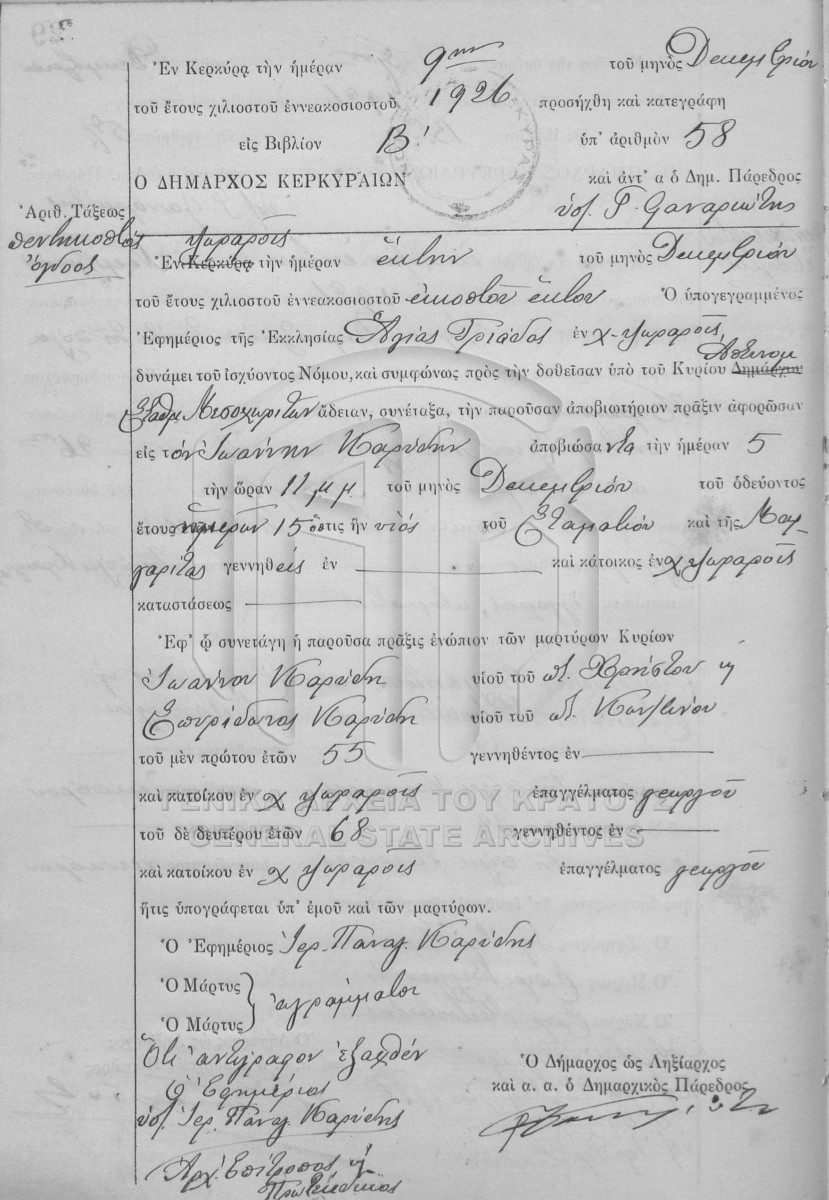 Ἐν Κερκύρᾳ τὴν ἡμέραν 9ην τοῦ μηνὸς Δεκεμβρίου
τοῦ ἔτους χιλιοστοῦ ἐννεακοσιοστοῦ 1926 προσήχθη καὶ κατεγράφη
εἰς Βιβλίον Β' ὑπ' ἀριθμὸν 58
Ο ΔΗΜΑΡΧΟΣ ΚΕΡΚΥΡΑΙΩΝ καὶ ἀντ' α ὁ Δημ. Πάρεδρος
Ἀριθ. Τάξεως
πεντηκοστὸς
ὄγδοος
Ψωραροῖς
Ἐν Κερκύρᾳ τὴν ἡμέραν ἕκτην τοῦ μηνὸς Δεκεμβρίου
τοῦ ἔτους χιλιοστοῦ ἐννεακοσιοστοῦ εἰκοστοῦ ἕκτου Ὁ ὑπογεγραμμένος
Ἐφημέριος τῆς Ἐκκλησίας Ἁγίας Τριάδος ἐν χ. Ψωραροῖς
δυνάμει τοῦ ἰσχύοντος Νόμου, καὶ συμφώνως πρὸς τὴν δοθεῖσαν ὑπὸ τοῦ Κυρίου Δημάρχου Ἀστυνομ
Σταθμ Μεσοχωριτῶν ἄδειαν, συνέταξα, τὴν παροῦσαν ἀποβιωτήριον πρᾶξιν ἀφορῶσαν
εἰς τὸν Ἰωάννην Καρύδην ἀποβιώσαντα τὴν ἡμέραν 5
τὴν ὥραν 11 μ μ τοῦ μηνὸς Δεκεμβρίου τοῦ ὁδεύοντος
ἔτους ἡμερῶν 15 ὅστις ἦν υἱὸς τοῦ Σταματίου καὶ τῆς Μαρ-
γαρίτας γεννηθείς ἐν καὶ κάτοικος ἐν χ Ψωραροῖς
καταστάσεως
Ἐφ' ᾧ συνετάγη ἡ παροῦσα πρᾶξις ἐνώπιον τῶν μαρτύρων Κυρίων
Ἰωάννου Καρύδη υἱοῦ τοῦ ποτ. Χρήστου ϗ
Σπυρίδωνος Καρύδη υἱοῦ τοῦ ποτ. Κωνσταντίνου
τοῦ μὲν πρώτου ἐτῶν 55 γεννηθέντος ἐν
καὶ κατοίκου ἐν χ Ψωραροῖς ἐπαγγέλματος γεωργοῦ
ΓΕΝΙΚΑ ΑΡΧΕΙΑ ΤΟΥ ΚΡΑΤΟΥΣ
τοῦ δὲ δευτέρου ἐτῶν 68 γεννηθέντος ἐν
GENERAL STATE ARCHIVES
καὶ κατοίκου ἐν χ Ψωραροῖς ἐπαγγέλματος γεωργοῦ
ἥτις ὑπογράφεται ὑπ' ἐμοῦ καὶ τῶν μαρτύρων.
Ὁ Ἐφημέριος Ἱερ. Παναγ. Καρύδης
Ὁ Μάρτυς
ἀγράμματοι
Ὁ Μάρτυς
Ὅτι ἀντίγραφον ἐξαχθέν
Ὁ Ἐφημέριος
ὑπ. Ἱερ. Παναγ. Καρύδης
Ὁ Δήμαρχος ὡς Ληξίαρχος
καὶ α. α. ὁ Δημαρχικὸς Πάρεδρος
Ἀρχ. Ἐπίτροπος ϗ
Πρωτέκδικος